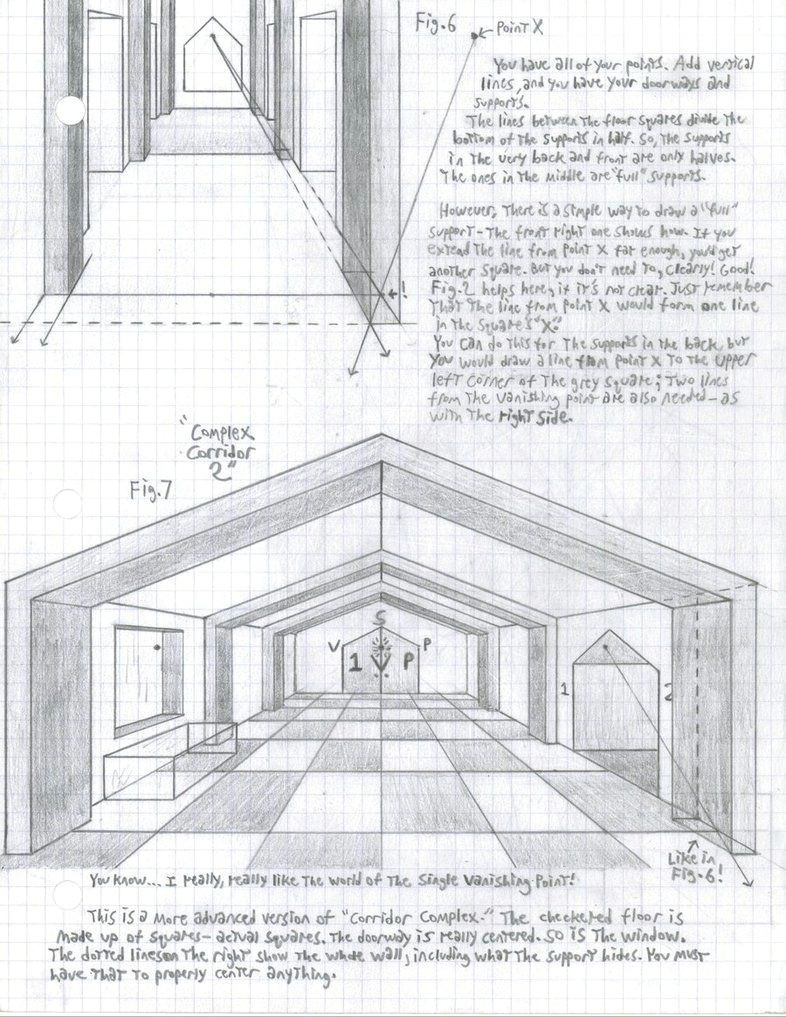 Fig.6
Point X
You have all of your points. Add vertical
lines, and you have your doorways and
supports.
The lines between the floor squares divide the
bottom of the supports in half. So, the supports
in the very back and front are only halves.
The ones in the middle are "full" supports.
However, there is a simple way to draw a "full"
support - the front right one shows how. If you
extend the line from point X far enough, you'd get
another square. But you don't need to, clearly! Good!
Fig. 2 helps here, if it's not clear. Just remember
that the line from point X would form one line
in the square's "X."
You can do this for the supports in the back, but
you would draw a line from point X to the upper
left corner of the grey square; two lines
from the vanishing point are also needed - as
with the right side.
!
"Complex
Corridor
2"
Fig.7
S
V P
1 V P
1 2
Like in
Fig.6!
You know... I really, really like the world of the Single Vanishing Point!
This is a more advanced version of "Corridor Complex." The checkered floor is
made up of squares - actual squares. The doorway is really centered. So is the window.
The dotted lines on the right show the whole wall, including what the support hides. You must
have that to properly center anything.